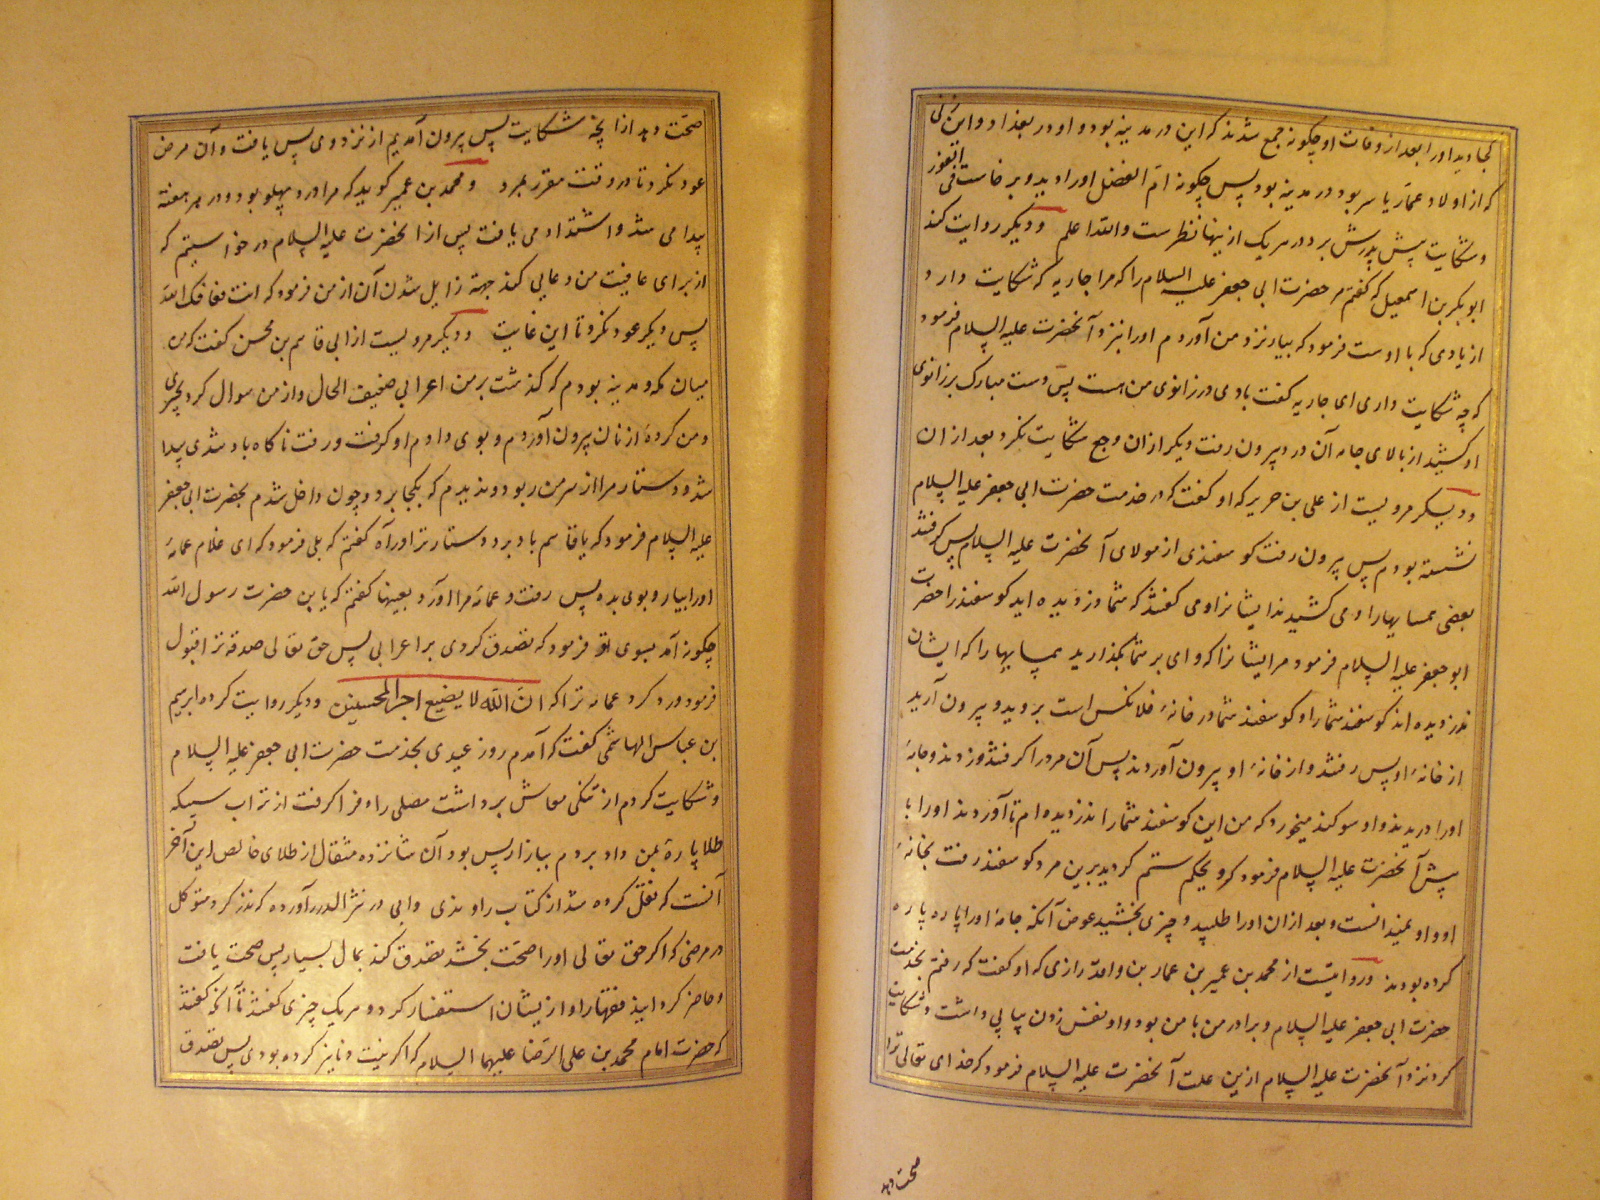 کجا دید او را بعد از وفات او چکونه جمع شدند که این در مدینه بود و او در بغداد و این زنی
که از اولاد عمار یاسر بود در مدینه بود پس چکونه ام الفضل او را دید و برخاست فی الفور
و شکایت پیش پدرش برد در هر یک از ینها نظرست والله اعلم ودیکر روایت کند
ابو بکر بن اسمعیل که کفتم مر حضرت ابی جعفر علیه السلام را که مرا جاریه که شکایت دارد
از یادی که با اوست فرمود که بیار نزد من آوردم او را نزد آنحضرت علیه السلام فرمود
که چه شکایت داری ای جاریه کفت بادی در زانوی من هست پس دست مبارک بر زانوی
او کشید از بالای جامه آن درد بیرون رفت دیکر از ان وجع شکایت نکرد بعد از ان
ودیکر مرویست از علی بن جریر که او کفت که در خدمت حضرت ابی جعفر علیه السلام
نشسته بودم پس بیرون رفت کوسفندی از مولای آنحضرت علیه السلام پس کرفتند
بعضی همسایها را و می کشیدند ایشانرا و می کفتند که شما دزدیده اید کوسفند را حضرت
ابو جعفر علیه السلام فرمود مر ایشانرا که وای بر شما بکذارید همسایها را که ایشان
ندزدیده اند کوسفند شما را و کوسفند شما در خانهٔ فلانکس است بروید و بیرون آرید
از خانهٔ او پس رفتند و از خانهٔ او بیرون آوردند پس آن مرد را کرفتند و زدند و جامهٔ
او را دریدند و او سوکند میخورد که من این کوسفند شما را ندزدیده ام تا آوردند او را با
پیش آنحضرت علیه السلام فرمود که ویحکم ستم کردید برین مرد کوسفند رفت بخانهٔ
او و او نمیدانست و بعد از ان او را طلبید و چیزی بخشید عوض آنکه جامهٔ او را پاره پاره
کرده بودند وروایتست از محمد بن عمیر بن واقد رازی که او کفت که رفتم بخدمت
حضرت ابی جعفر علیه السلام و برادر من با من بود و او نفس زدن پیاپی داشت و شکایت
کرد نزد آنحضرت علیه السلام ازین علت آنحضرت علیه السلام فرمود که خدای تعالی ترا
صحت دهد
صحت دهد از آنچه شکایت پس بیرون آمدیم از نزد وی پس یافت و آن مرض
عود نکرد تا در وقت مقرر بمرد ومحمد بن عمیر کوید که مرا درد پهلو بود و در هر هفته
پیدا می شد و اشتداد می یافت پس از انحضرت علیه السلام درخواستم که
از برای عافیت من دعایی کند جهة زایل شدن آن از من فرمود که انت فعافک الله
پس دیکر عود نکرد تا این غایت ودیکر مرویست از ابی قاسم بن محسن کفت که من
میان مکه و مدینه بودم که کذشت بر من اعرابی ضعیف الحال و از من سوال کرد بچیزی
و من کردهٔ از نان بیرون آوردم و بوی دادم او کرفت و رفت ناکاه باد شدی پیدا
شد و دستار مرا از سر من ربود و ندیدم که بکجا برد و چون داخل شدم بحضرت ابی جعفر
علیه السلام فرمود که یا قاسم باد برد دستار ترا در راه کفتم که بلی فرمود که ای غلام عمامهٔ
او را بیار و بوی بده پس رفت و عمامهٔ مرا آورد بعینها کفتم که یا بن حضرت رسول الله
چکونه آمد بسوی تو فرمود که تصدق کردی بر اعرابی پس حق تعالی صدقه ترا قبول
فرمود و رد کرد عمامه ترا که ان الله لا یضیع اجر المحسنین ودیکر روایت کرده ابرهیم
بن عباس الهاشمی کفت که آمدم روز عیدی بخدمت حضرت ابی جعفر علیه السلام
و شکایت کردم از تنکی معاش برداشت مصلی را و فرا کرفت از تراب سبیکه
طلا پارهٔ بمن داد بردم ببازار پس بود آن شانزده مثقال از طلای خالص این آخر
آنست که نقل کرده شد از کتاب راوندی وابی در نثر الدرر آورده که نذر کرد متوکل
در مرضی که اکر حق تعالی او را صحت بخشد تصدق کند بمال بسیار پس صحت یافت
و حاضر کردانید فقها را و از یشان استفسار کرد و هر یک چیزی کفتند تا آنکه کفتند
که حضرت امام محمد بن علی الرضا علیهما السلام که اکر نیت دنانیر کرده بودی پس تصدق